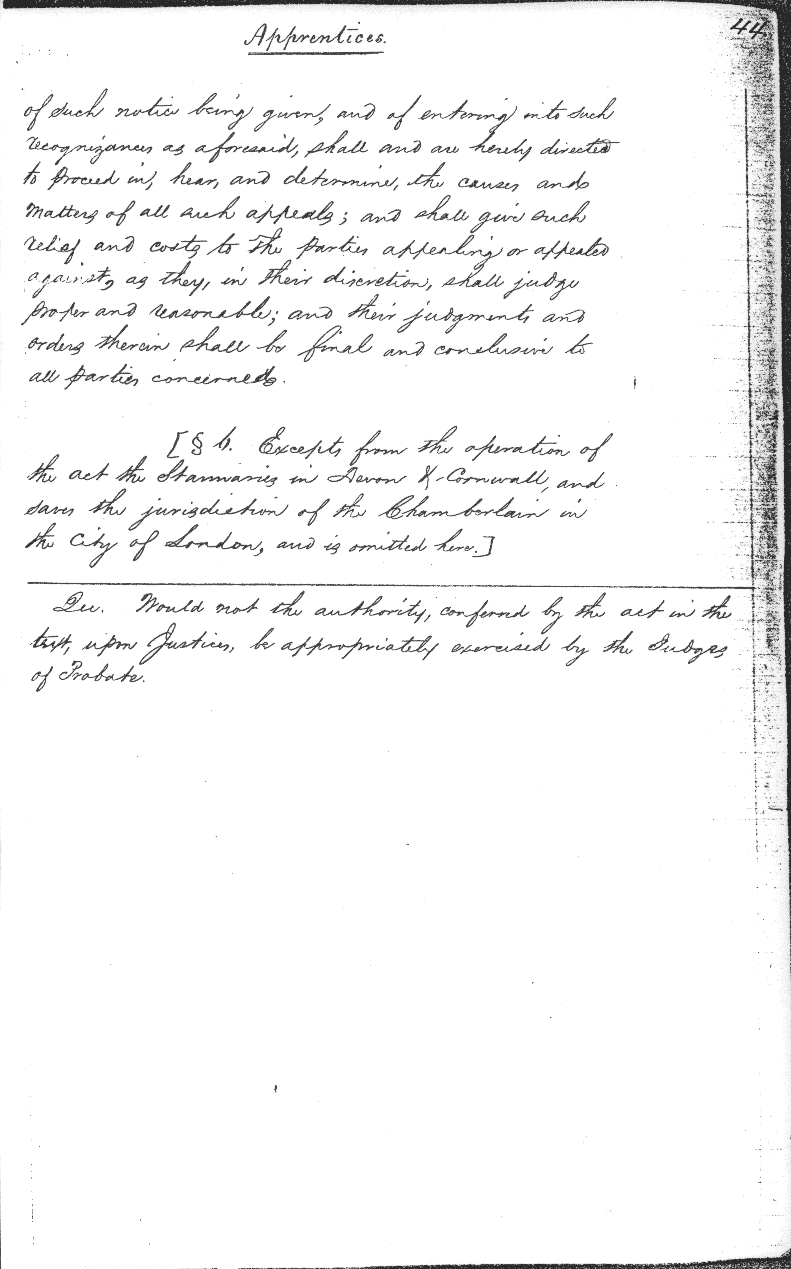 Apprentices.
44
of such notice being given, and of entering into such
recognizances as aforesaid, shall and are hereby directed
to proceed in, hear, and determine, the causes and
matters of all such appeals; and shall give such
relief and costs to the parties appealing or appealed
against, as they, in their discretion, shall judge
proper and reasonable; and their judgments and
orders therein shall be final and conclusive to
all parties concerned.
[§ 6. Excepts from the operation of
the act the Stannaries in Devon & Cornwall, and
saves the jurisdiction of the Chamberlain in
the City of London, and is omitted here.]
Qu. Would not the authority, conferred by the act in the
text, upon Justices, be appropriately exercised by the Judges
of Probate.